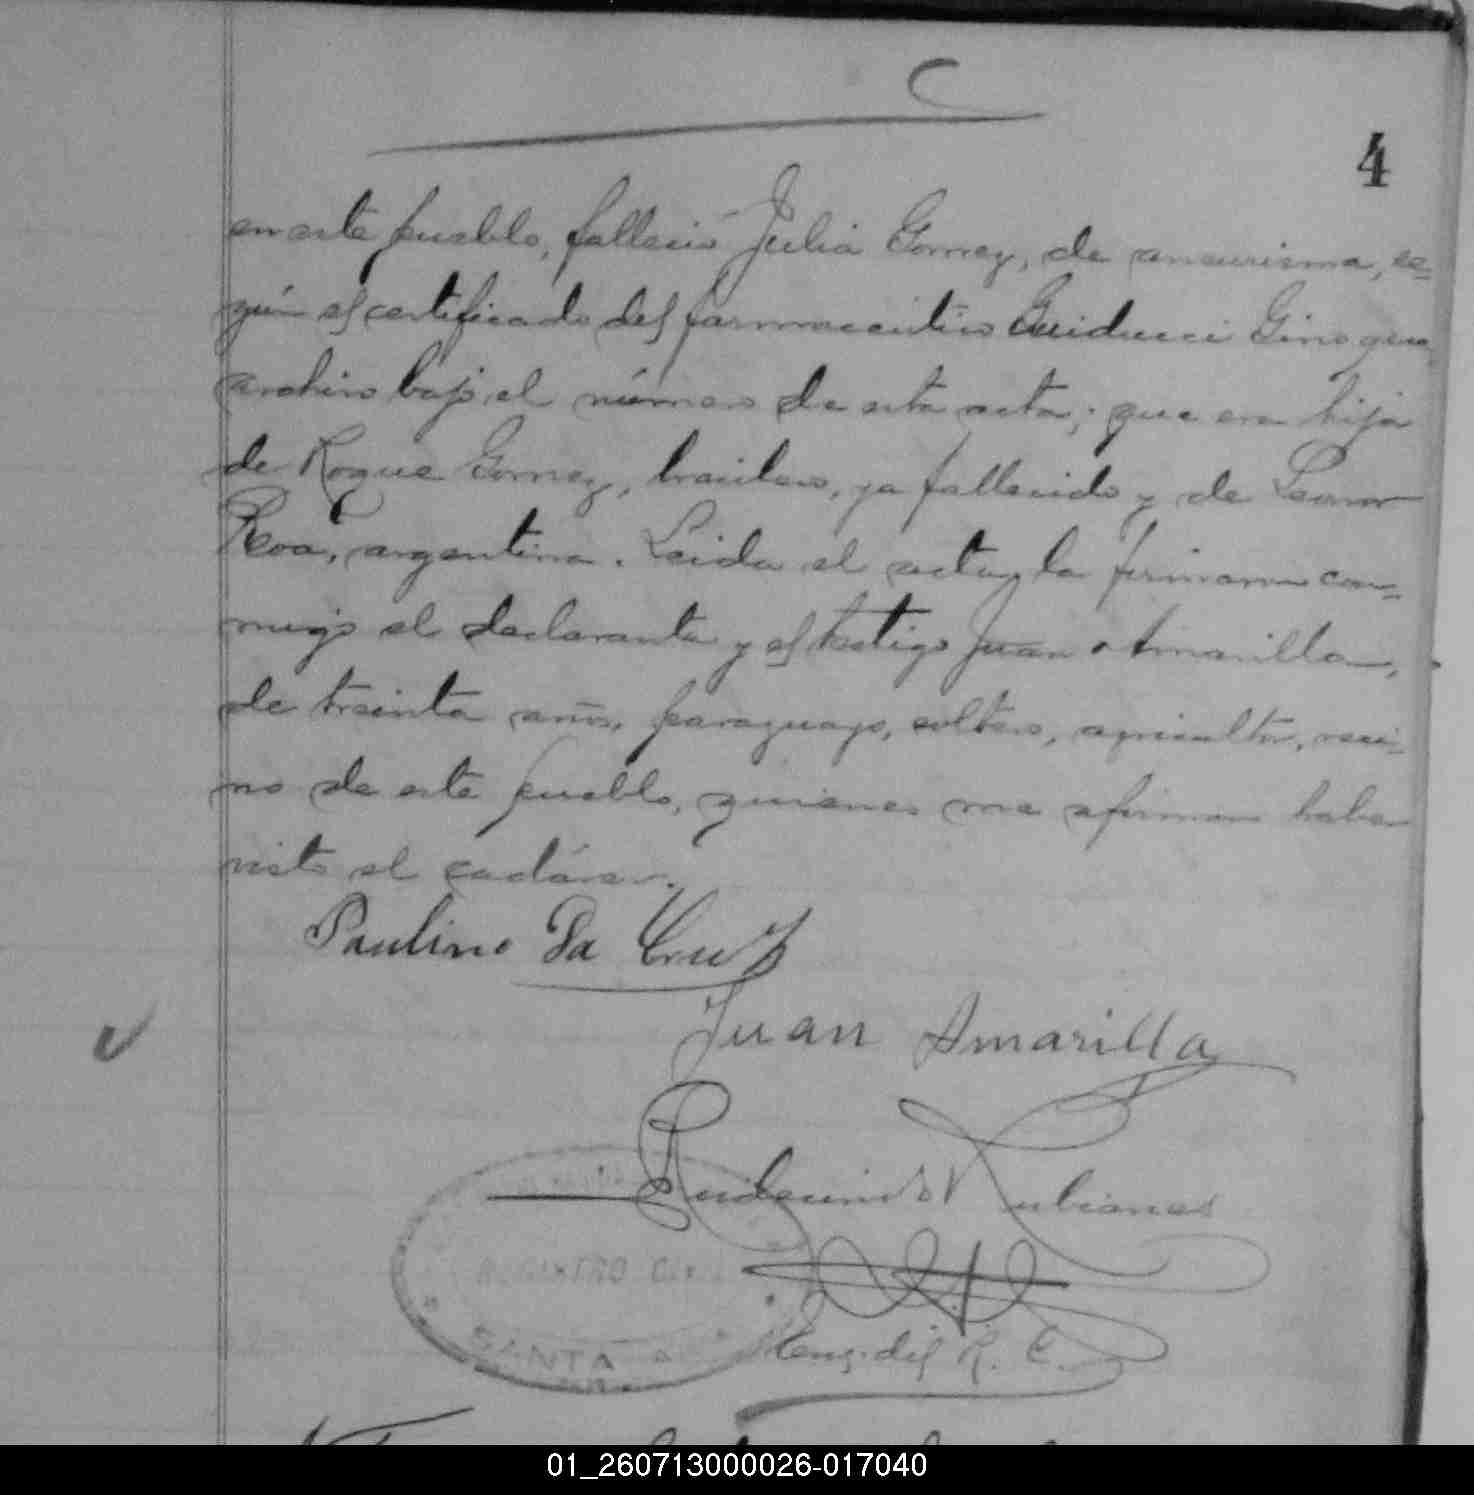 4
en este pueblo, falleció Julia Gomez, de aneurisma, se=
gún el certificado del farmaceutico Guiducci Gino que
archivo bajo el número de esta acta; que era hija
de Roque Gomez, brasilero, ya fallecido y de Leonor
Roa, argentina. Leida el acta, la firmaron con=
migo el declarante y el testigo Juan Amarilla,
de treinta años, paraguayo, soltero, agricultor, veci=
no de este pueblo, quienes me afirman haber
visto el cadáver.
Paulino Da Cruz
Juan Amarilla
Rubianes
REGISTRO CIVIL
SANTA A
Enc. del R. C.
01_260713000026-017040